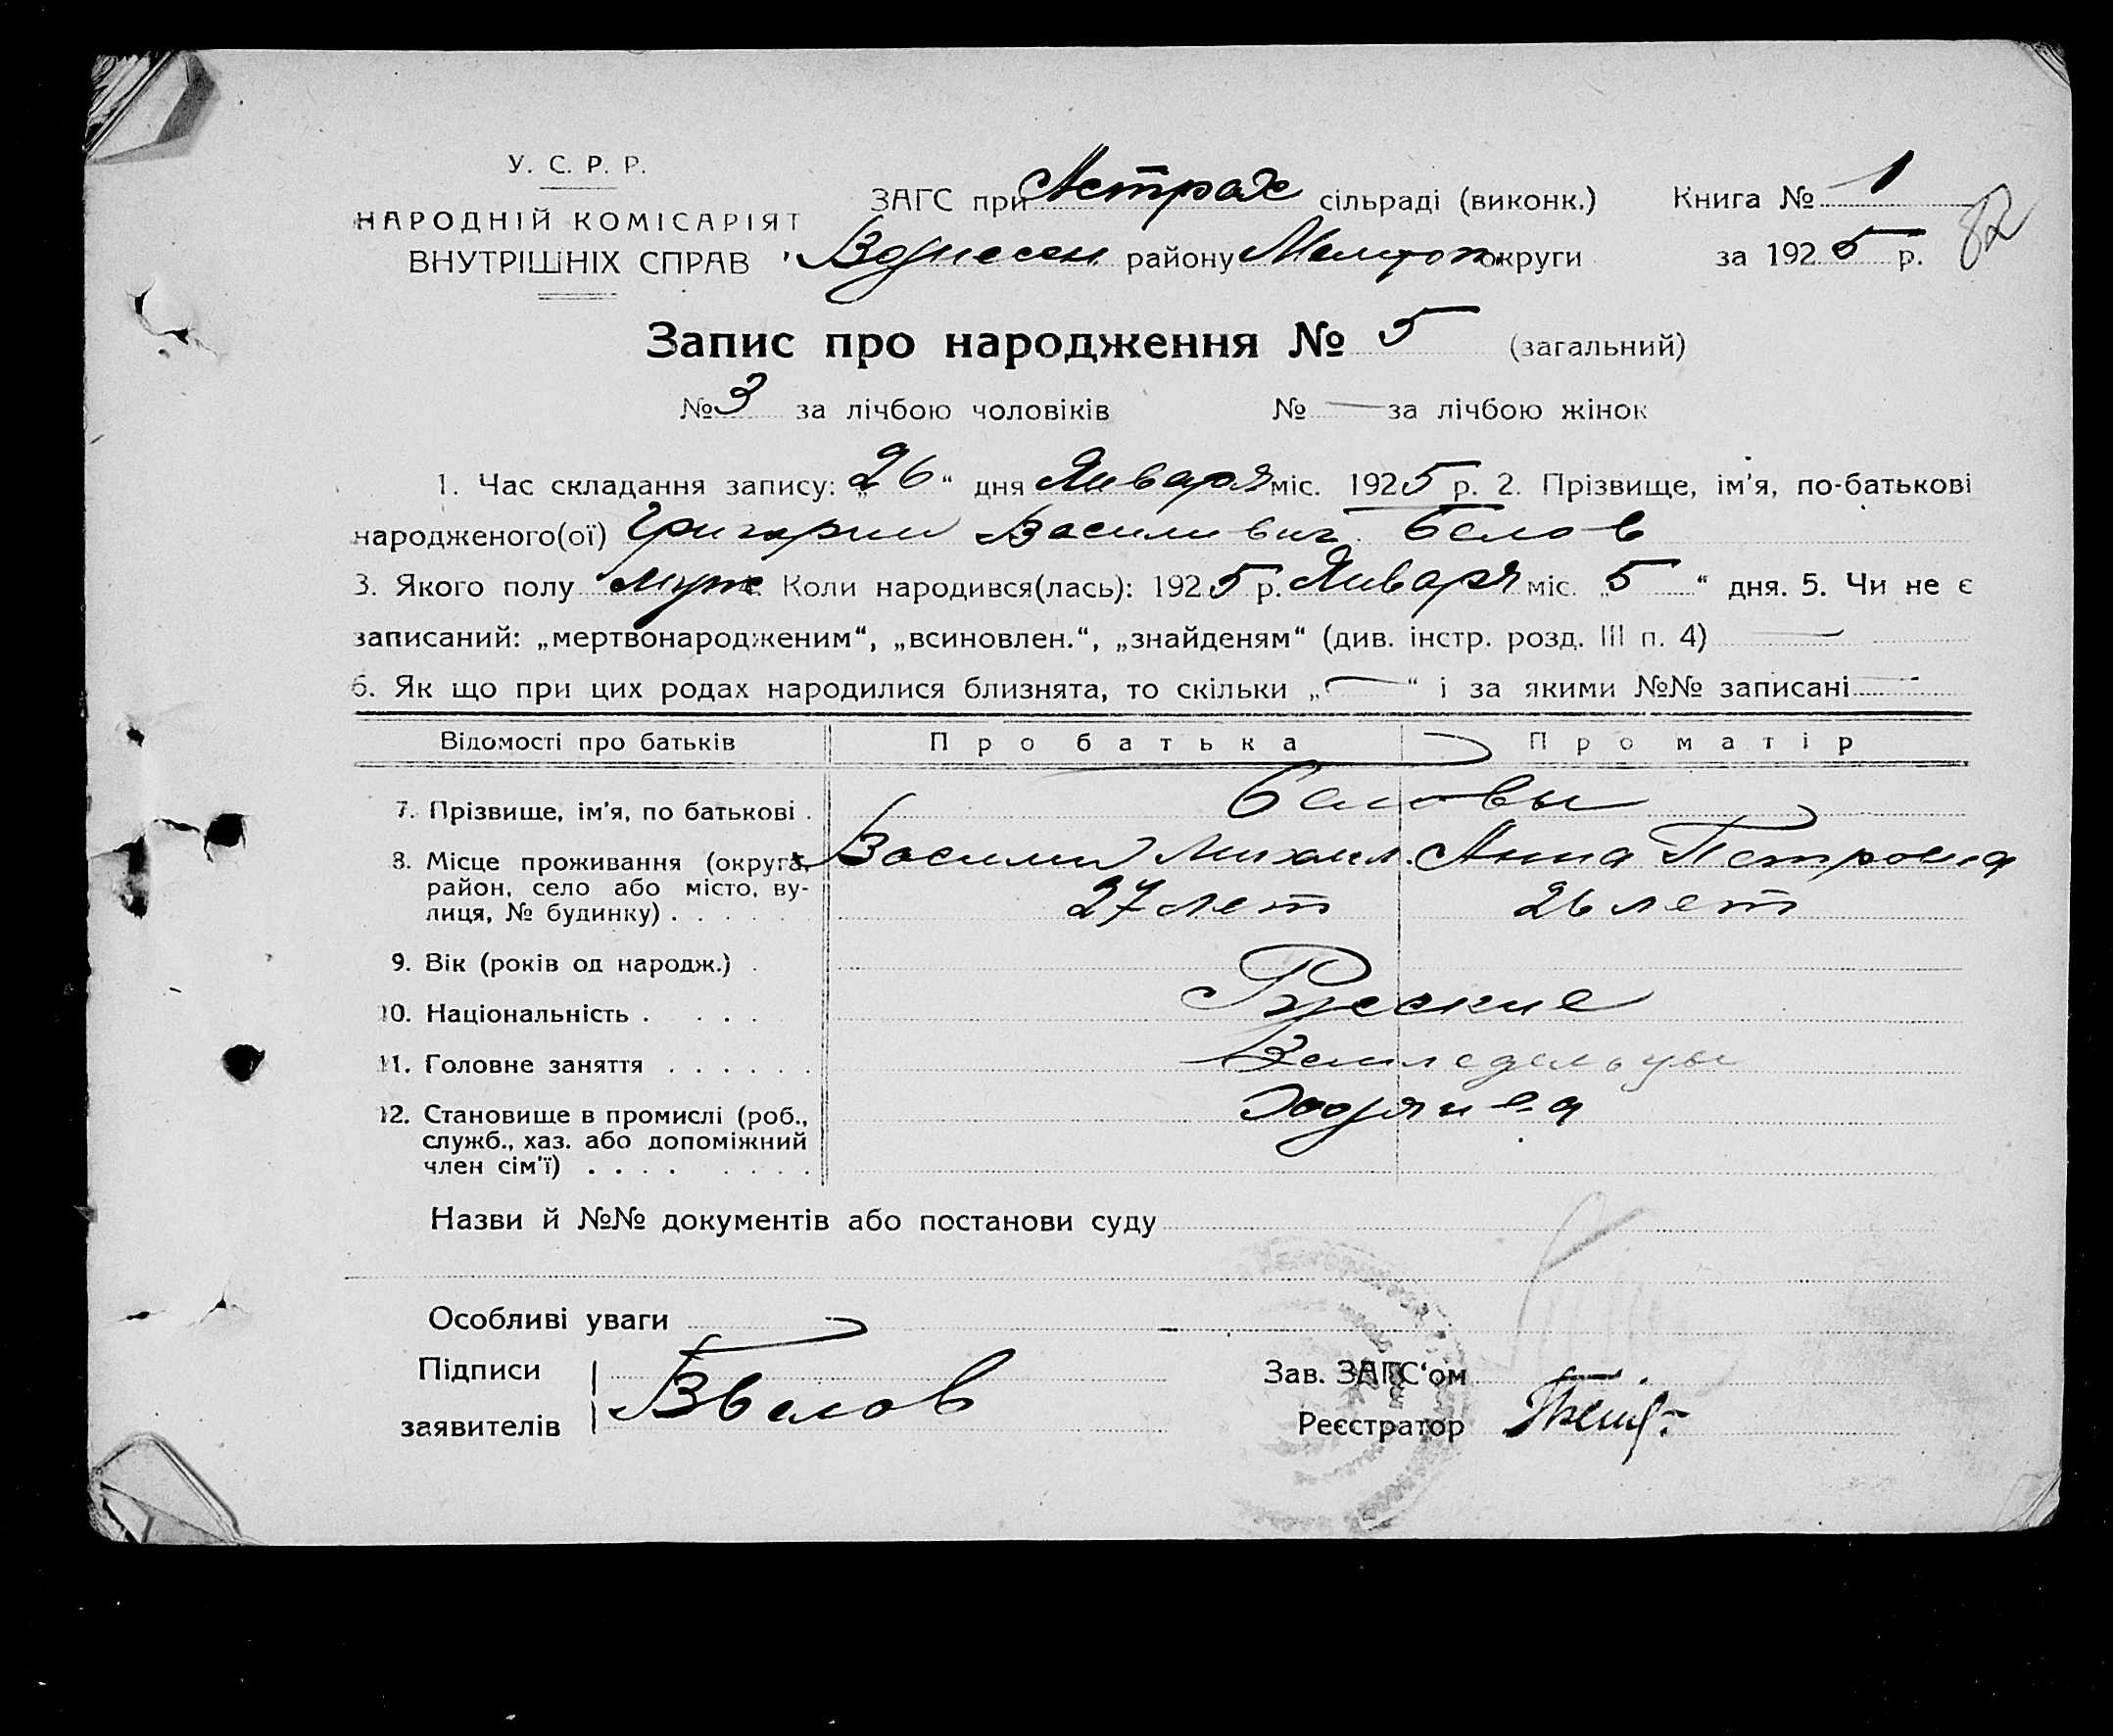 У. С. Р. Р.
НАРОДНІЙ КОМІСАРІЯТ
ВНУТРІШНІХ СПРАВ
ЗАГС при Астрах сільраді (виконк.) Книга № 1
Вознесен району Мелитоп округи за 1925 р. 82
Запис про народження № 5 (загальний)
№ 3 за лічбою чоловіків № — за лічбою жінок
1. Час складання запису: „26“ дня Января міс. 1925 р. 2. Прізвище, ім'я, по-батькові
народженого(ої) Григорий Василивич Белов
3. Якого полу муж. Коли народився(лась): 1925 р. Января міс. „5“ дня. 5. Чи не є
записаний: „мертвонародженим“, „всиновлен.“, „знайденям“ (див. інстр. розд. III п. 4) —
6. Як що при цих родах народилися близнята, то скільки „—“ і за якими №№ записані —
Відомості про батьків Про батька Про матір
7. Прізвище, ім'я, по батькові . Беловы
8. Місце проживання (округа, Василий Михаил. Анна Петровна
район, село або місто, ву- 27 лет 26 лет
лиця, № будинку) . . . . .
9. Вік (років од народж.) .
10. Національність . . . . Русские
11. Головне заняття . . . . . . Земледельцы
12. Становище в промислі (роб., Хозяина
служб., хаз. або допоміжний
член сім'ї) . . . . . . . .
Назви й №№ документів або постанови суду
Особливі уваги
Підписи Зав. ЗАГС'ом
заявителів ВБелов Реєстратор